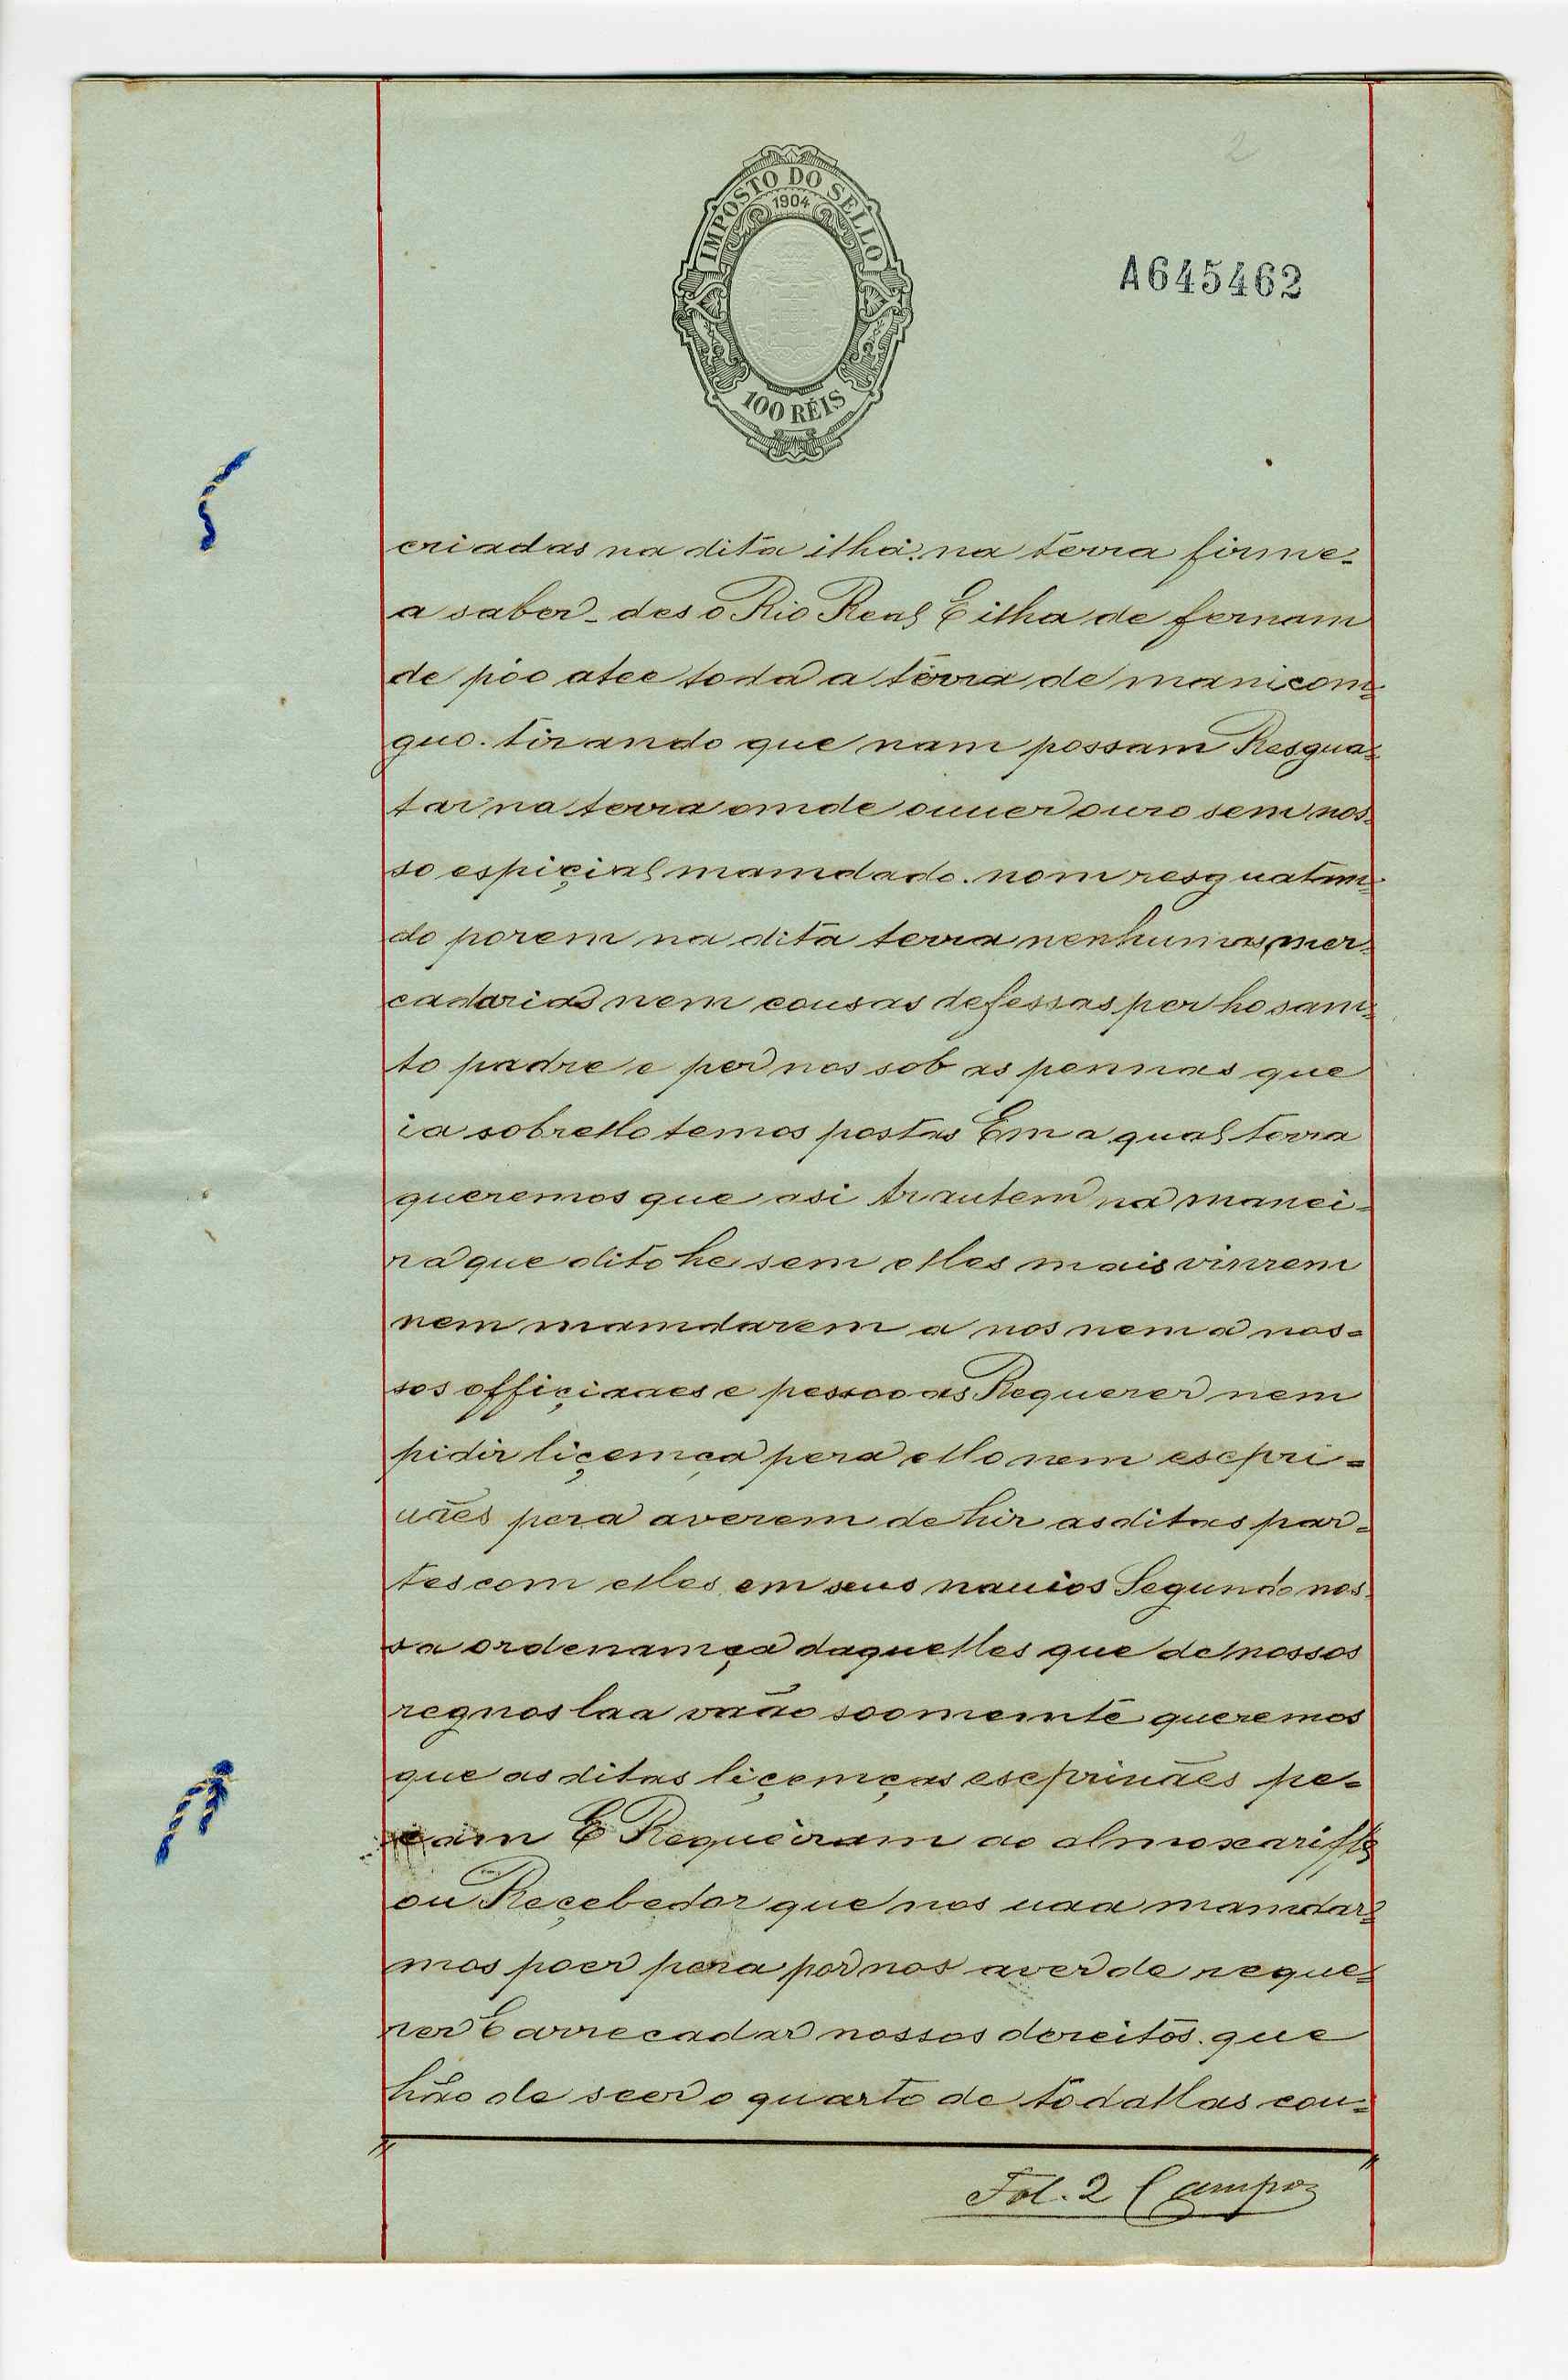 2
IMPOSTO DO SELLO
1904
100 RÉIS
A645462
criadas na dita ilha. na terra firme-
a saber- des o Rio Real E ilha de fernam
de póo atee toda a terra de manicom-
guo. tirando que nam possam Resgua-
tar na terra omde ouuer ouro sem nos-
so espiçial mamdado. nom resguatam-
do porem na dita terra nenhumas mer-
cadarias nem cousas defessas per ho sam-
to padre e per nos sob as pennas que
ia sobrello temos postas Em a qual terra
queremos que asi trautem na manei-
ra que dito he sem elles mais vinrem
nem mamdarem a nos nem a nos-
sos offiçiaaes e pessooas Requerer nem
pidir liçemça pera ello nem escpri-
uães pera averem de hir as ditas par-
tes com elles em seus nauios Segundo nos-
sa ordenamça daquelles que de nossos
regnos laa vaão soomemte queremos
que as ditas liçemças escpriuães pe-
çam E Requeiram ao almoxariffe
ou Reçebedor que nos uaa mamdar-
mos poer pera por nos aver de reque-
rer E arrecadar nossos dereitos. que
hão de seer o quarto de todallas cou-
Fol. 2 Campos